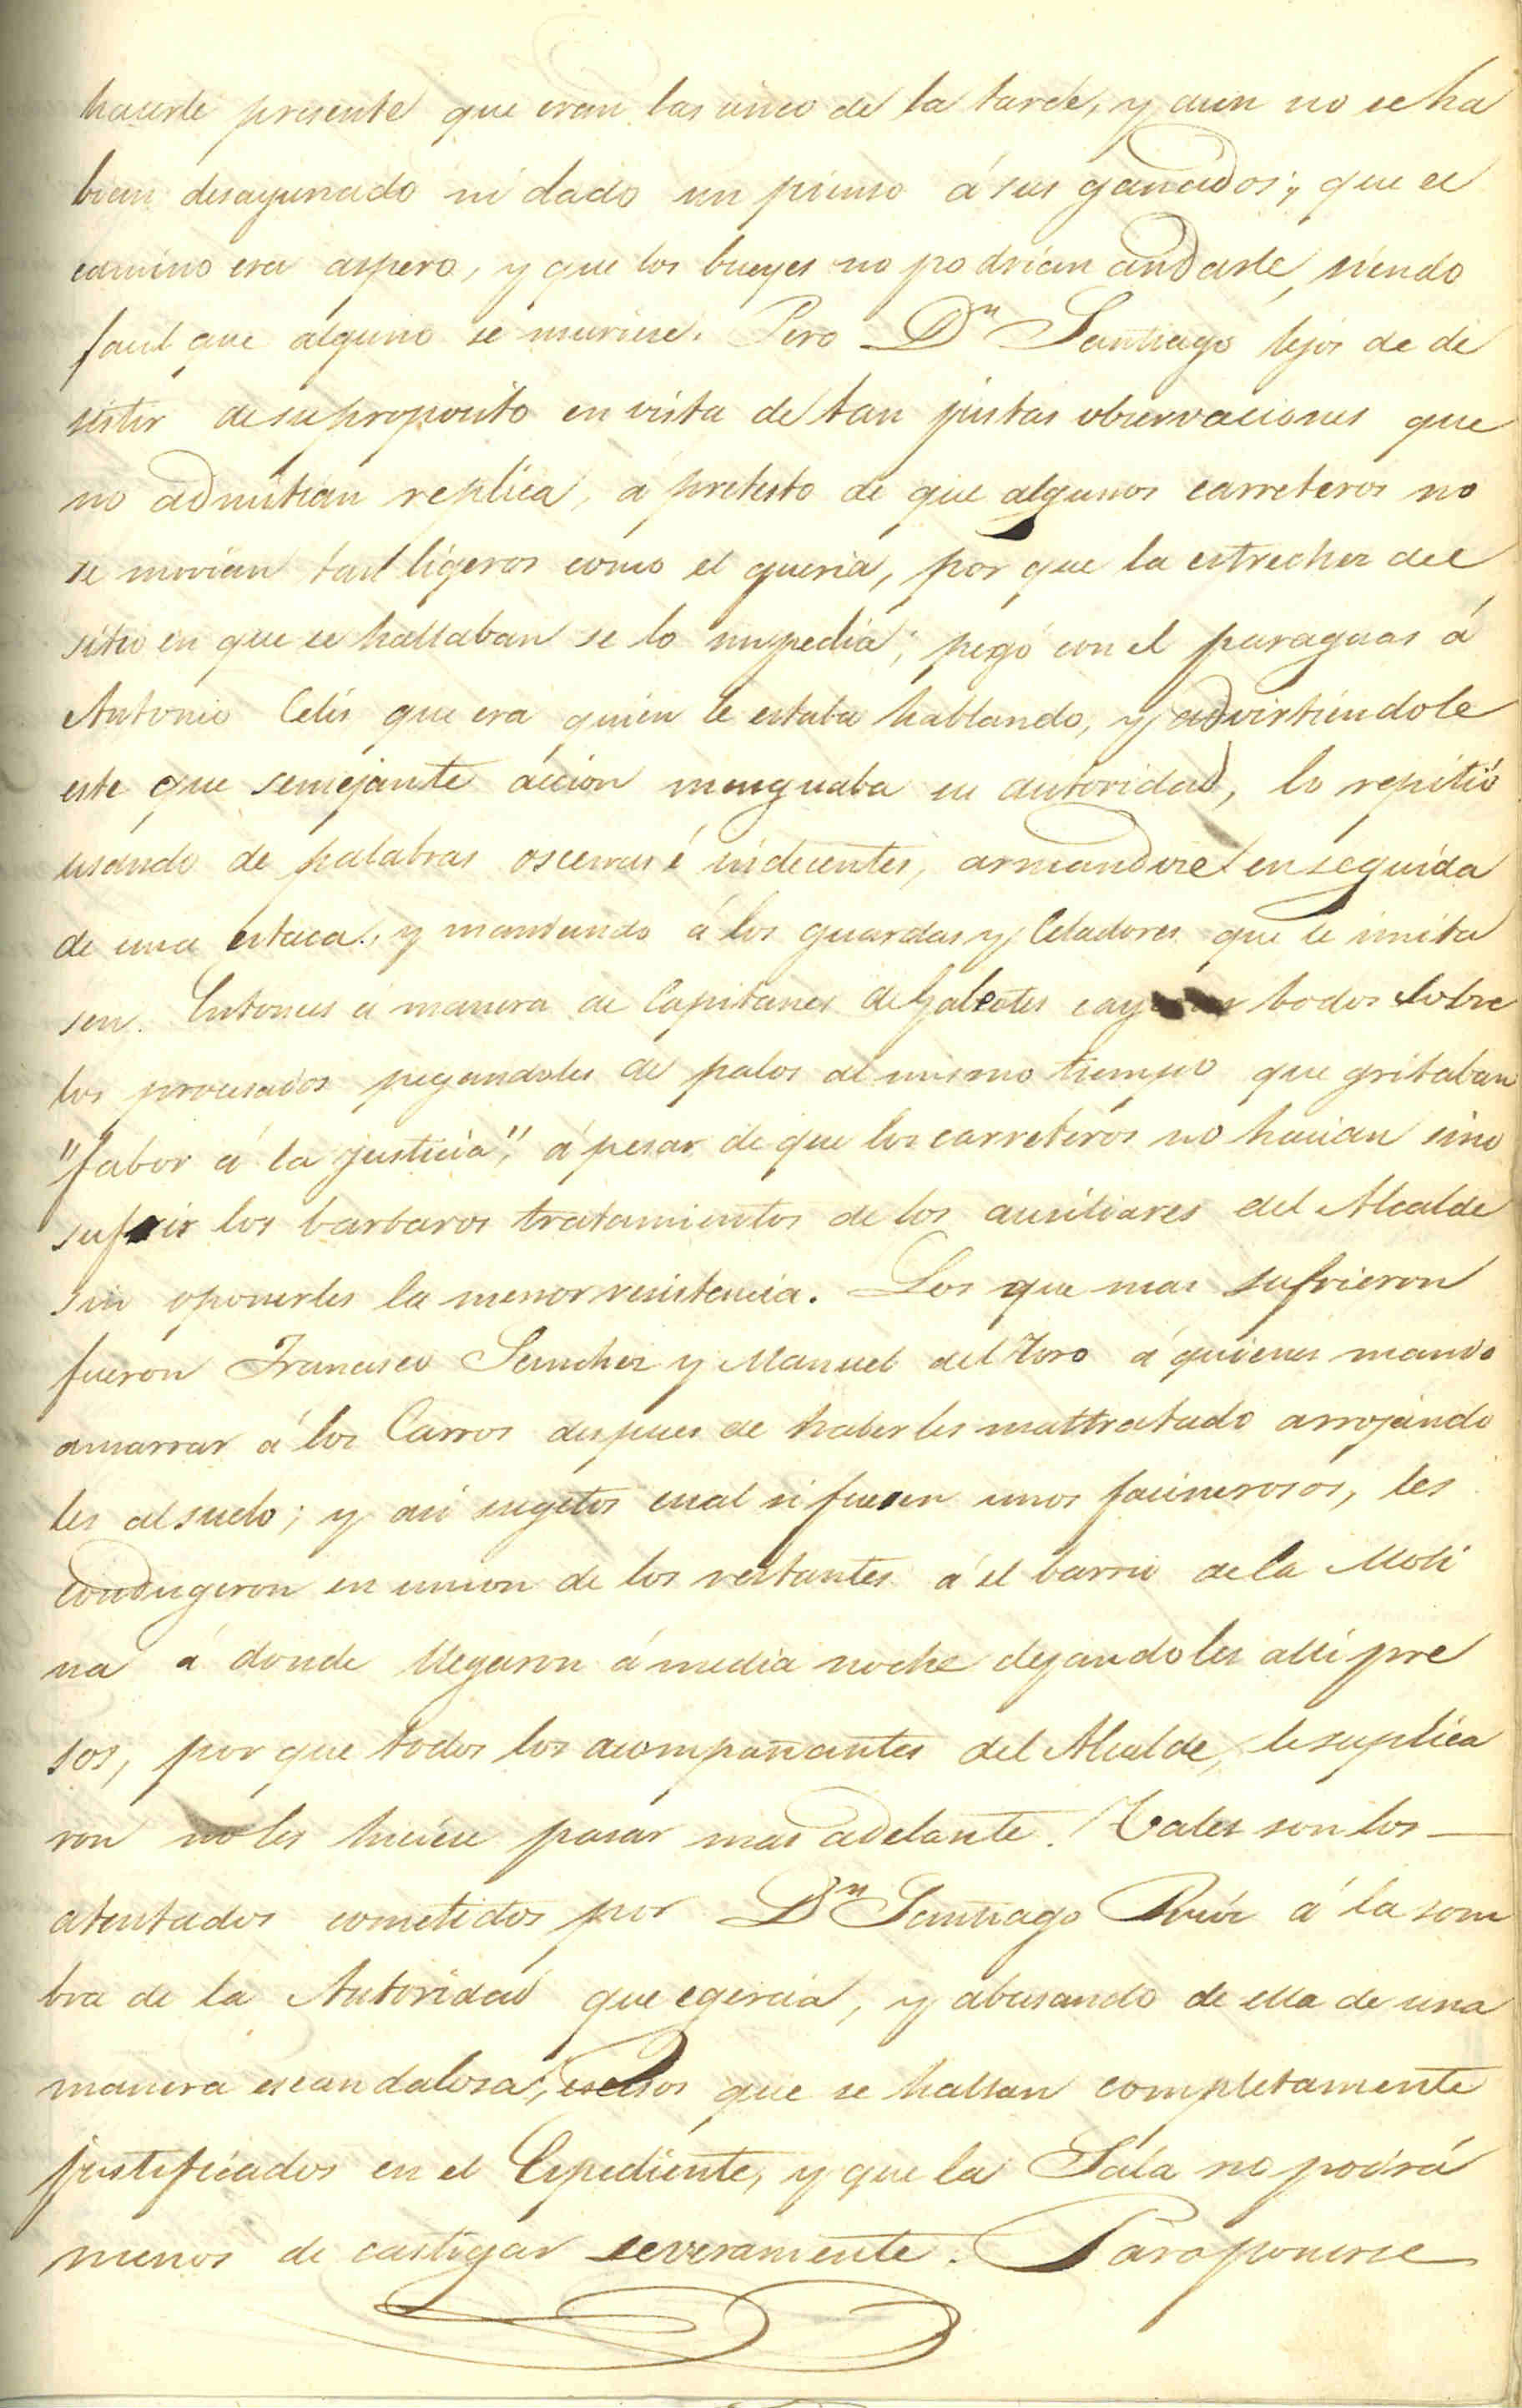 hacerle presente que eran las cinco de la tarde, y aun no se ha
bian desayunado ni dado un pienso á sus ganados; que el
camino era aspero, y que los bueyes no podrian andarle, siendo
facil que alguno se muriese. Pero Dn Santiago lejos de de
sistir de su proposito en vista de tan justas observaciones que
no admitian replica, á pretesto de que algunos carreteros no
se movian tan ligeros como el queria, por que la estrechez del
sitio en que se hallaban se lo impedia; pegó con el paraguas á
Antonio Celis que era quien le estaba hablando, y advirtiéndole
este que semejante accion menguaba su autoridad, lo repitió
usando de palabras oscenas é indecentes, armandose en seguida
de una estaca, y mandando á los guardas y Celadores que le imita
sen. Entonces á manera de Capitanes de Galeotes cayeron todos sobre
los procesados pegandoles de palos al mismo tiempo que gritaban
"fabor á la justicia", á pesar de que los carreteros no hacian sino
sufrir los barbaros tratamientos de los ausiliares del Alcalde
sin oponerles la menor resistencia. Los que mas sufrieron
fueron Francisco Sanchez y Manuel del Toro á quienes mando
amarrar á los Carros despues de haberles maltratado arrojando
les al suelo; y asi sugetos cual si fuesen unos facinerosos, les
condugeron en union de los restantes á el barrio de la Moli
na á donde llegaron á media noche dejandoles alli pre
sos, por que todos los acompañantes del Alcalde, le suplica
ron no les hiciese pasar mas adelante. Tales son los
atentados cometidos por Dn Santiago Ruiz á la som
bra de la Autoridad que egercia, y abusando de ella de una
manera escandalosa; escesos que se hallan completamente
justificados en el Espediente, y que la Sala no podrá
menos de castigar severamente. Para ponerse